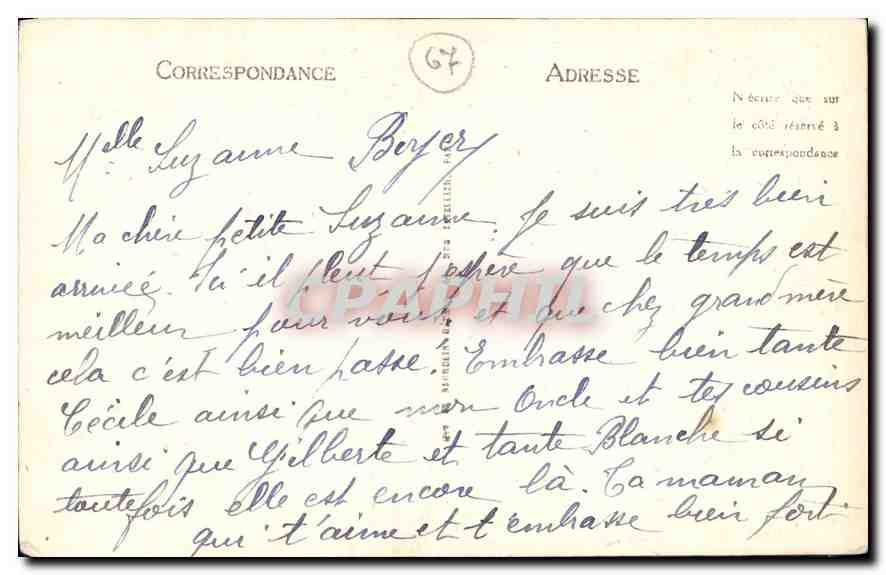 67
CORRESPONDANCE
ADRESSE
N'écrire que sur
le côté réservé à
la correspondance
Melle Suzanne Boyer
Ma chère petite Suzanne. Je suis très bien
arrivée. Ici il pleut j'espère que le temps est
meilleur pour vous et que chez grand mère
cela c'est bien passé. Embrasse bien tante
Cécile ainsi que mon Oncle et tes cousins
ainsi que Gilberte et tante Blanche si
toutefois elle est encore là. Ta maman
qui t'aime et t'embrasse bien fort
CPAPHIL